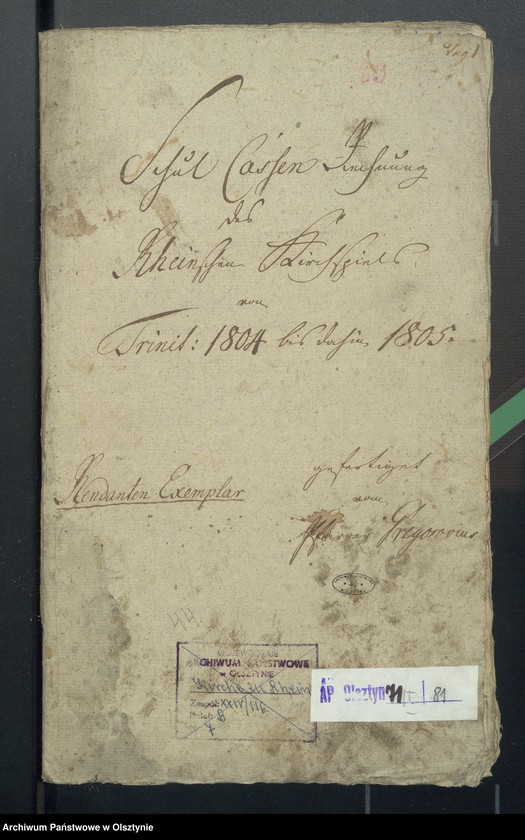 Schul Cassen Rechnung
des
Rheinschen Kirchspiels
von
Trinit: 1804 bis dahin 1805.
Rendanten Exemplar
gefertiget
vom
Pfarrer Gregorovius
44.
ARCHIWUM PAŃSTWOWE
w OLSZTYNIE
Kirche zu Rhein
Zespół: XXIV/116
8
7
AP Olsztyn 11 I 81
Archiwum Państwowe w Olsztynie
Archiwum Państwowe w Olsztynie